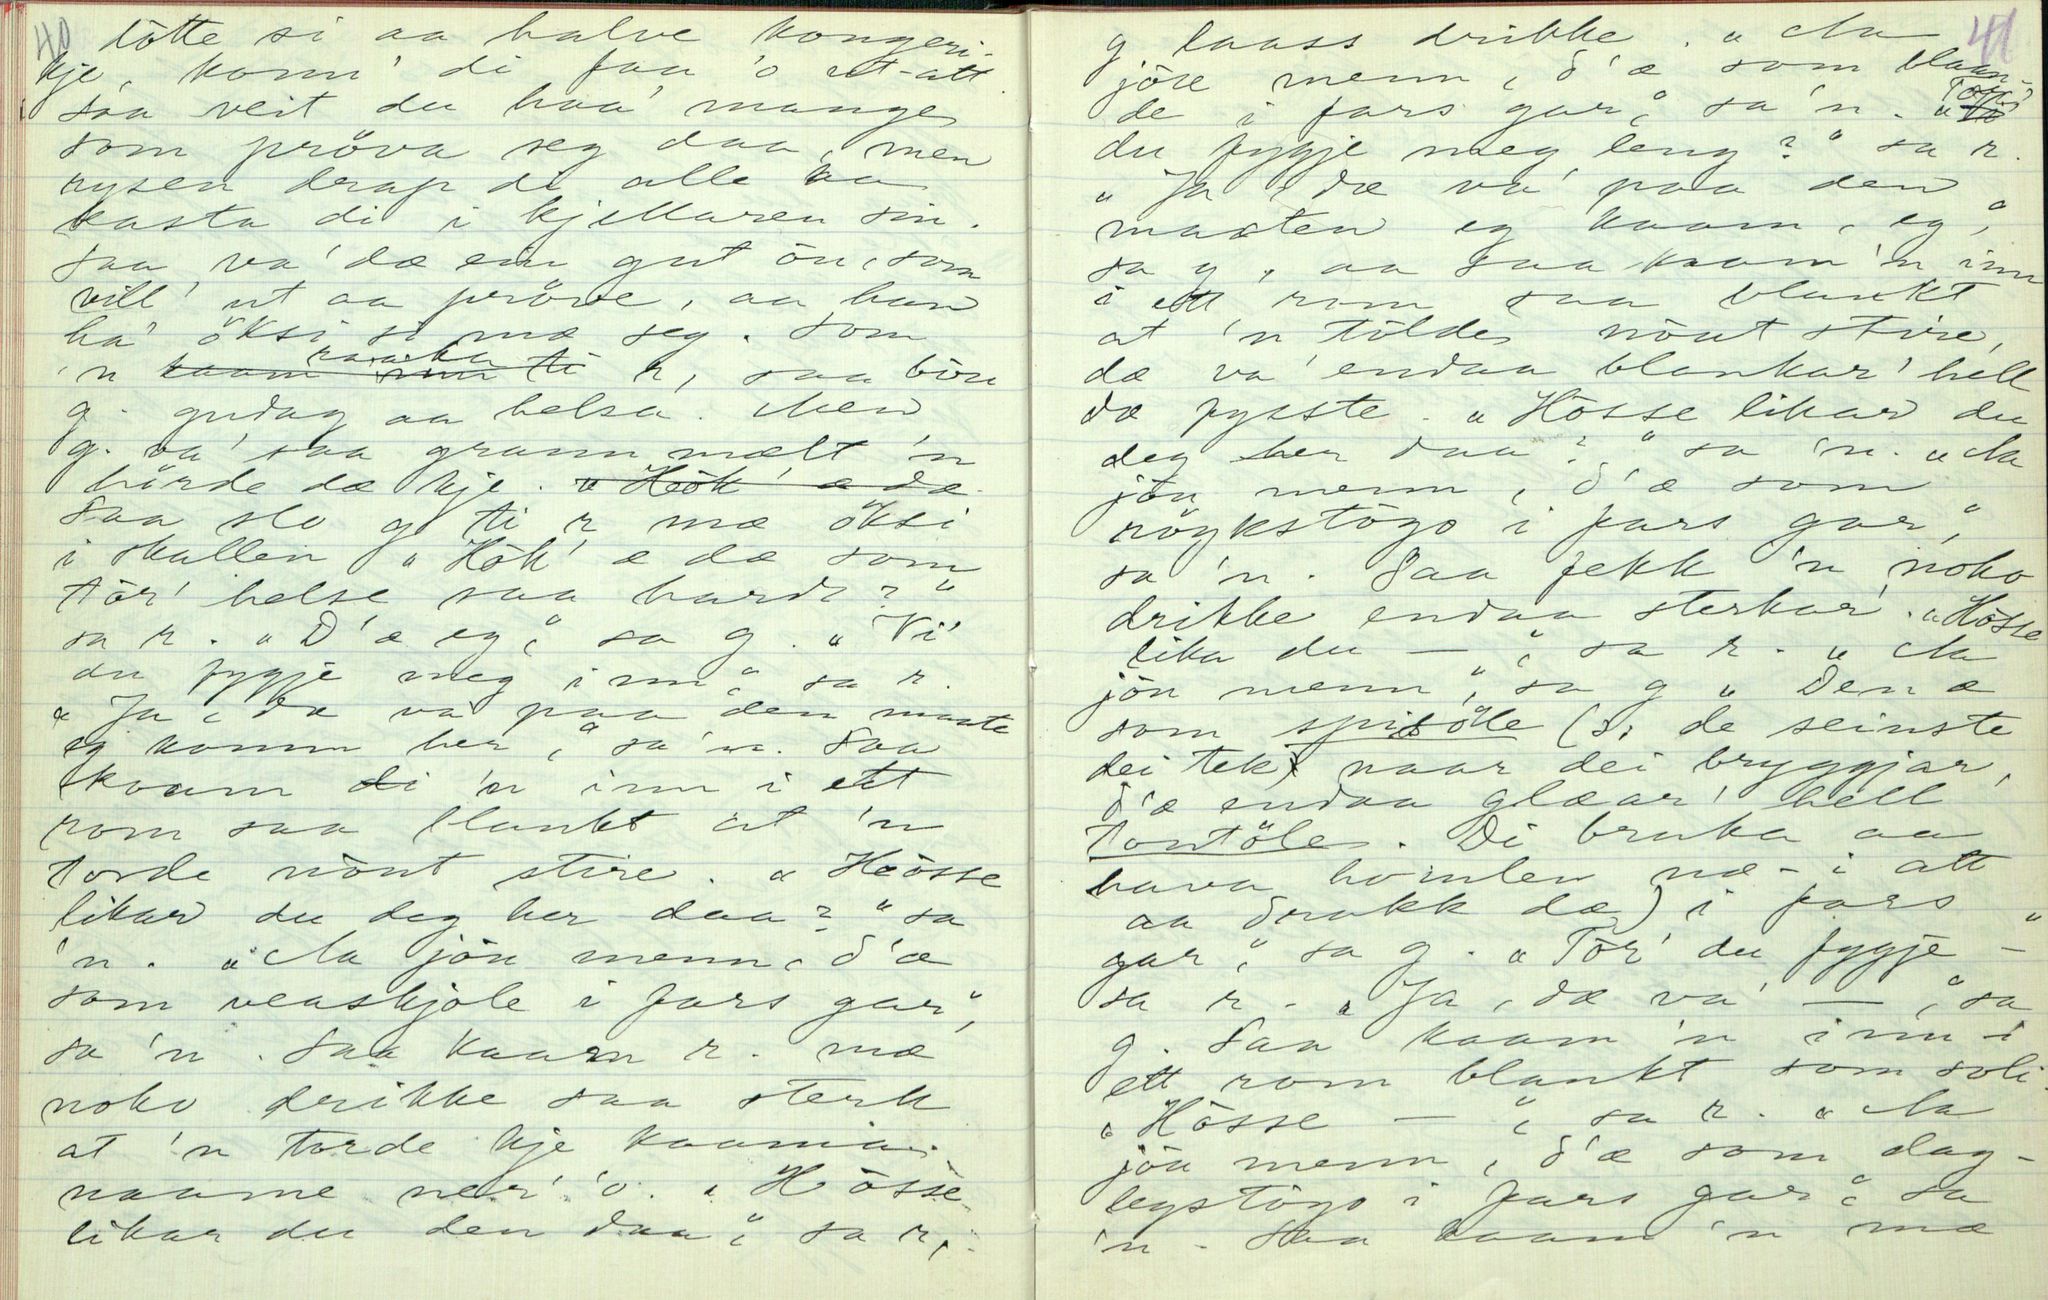 40
tötte si aa halve kongeri-
kje, komm' di faa 'o ut-att
saa veit du haa' mange
som pröva seg daa, men
rysen drap di alle aa
kasta di i kjellaren sin.
Saa va' dæ ein gut ön, som
vill' ut aa pröve, aa han
ha' öksi si mæ seg. Som
'n raaka r, saa böu
g. gudag aa helsa. Men
g. va' saa grannmælt 'n
hörde dæ kje. "Hök' æ dæ
Saa slo g ti r mæ öksi
i skallen "Hök' æ dæ som
tör' helse saa hardt?"
sa r. "D'æ eg," sa g. "Vi'
du fygje meg inn," sa r.
"Ja, dæ va paa den maate
eg komm her," sa 'n. Saa
kvam di 'n inn i ett
rom saa blankt at 'n
torde nöut stire. "Hösse
likar du deg her daa?" sa
'n. "Aa jöu menn, d'æ
som veaskjole i fars gar",
sa 'n. Saa kaam r. mæ
noko drikke saa sterk
at 'n torde kje kaama
naame ner' 'o. "Hösse
likar du den daa", sa r,
41
g laass drikke. "Aa
jöu menn, d'æ som blaan-
de i fars gar," sa 'n. "Torfis
du fygje meg leng?" sa r.
"Ja, dæ va' paa den
maaten eg kaam, eg",
sa g, aa saa kaam 'n inn
i ett rom saa blankt
at 'n töldes nöut stire,
dæ va' endaa blankar' hell
dæ fysste. "Hösse likar du
deg her daa?" sa 'n. "Aa
jöu menn, d'æ som
röykstögo i fars gar,"
sa 'n. Saa fekk 'n noko
drikke endaa sterkar'. "Hösse
lika du —", sa r. "Aa
jöu menn", sa g "Den æ
som spissöle (ɔ: de seinste
dei tek naar dei bryggjar,
d'æ endaa glæar' hell
tontöle. Di bruka aa
hava homlen næ-i att
aa drakk dæ) i fars
gar," sa g. "Tör' du fygje —"
sa r. "Ja, dæ va' —", sa
g. Saa kaam 'n inn i
ett rom blankt som soli.
"Hösse —", sa r. "Aa
jöu menn, d'æ som dag-
legstögo i fars gar", sa
'n. Saa kaam 'n mæ